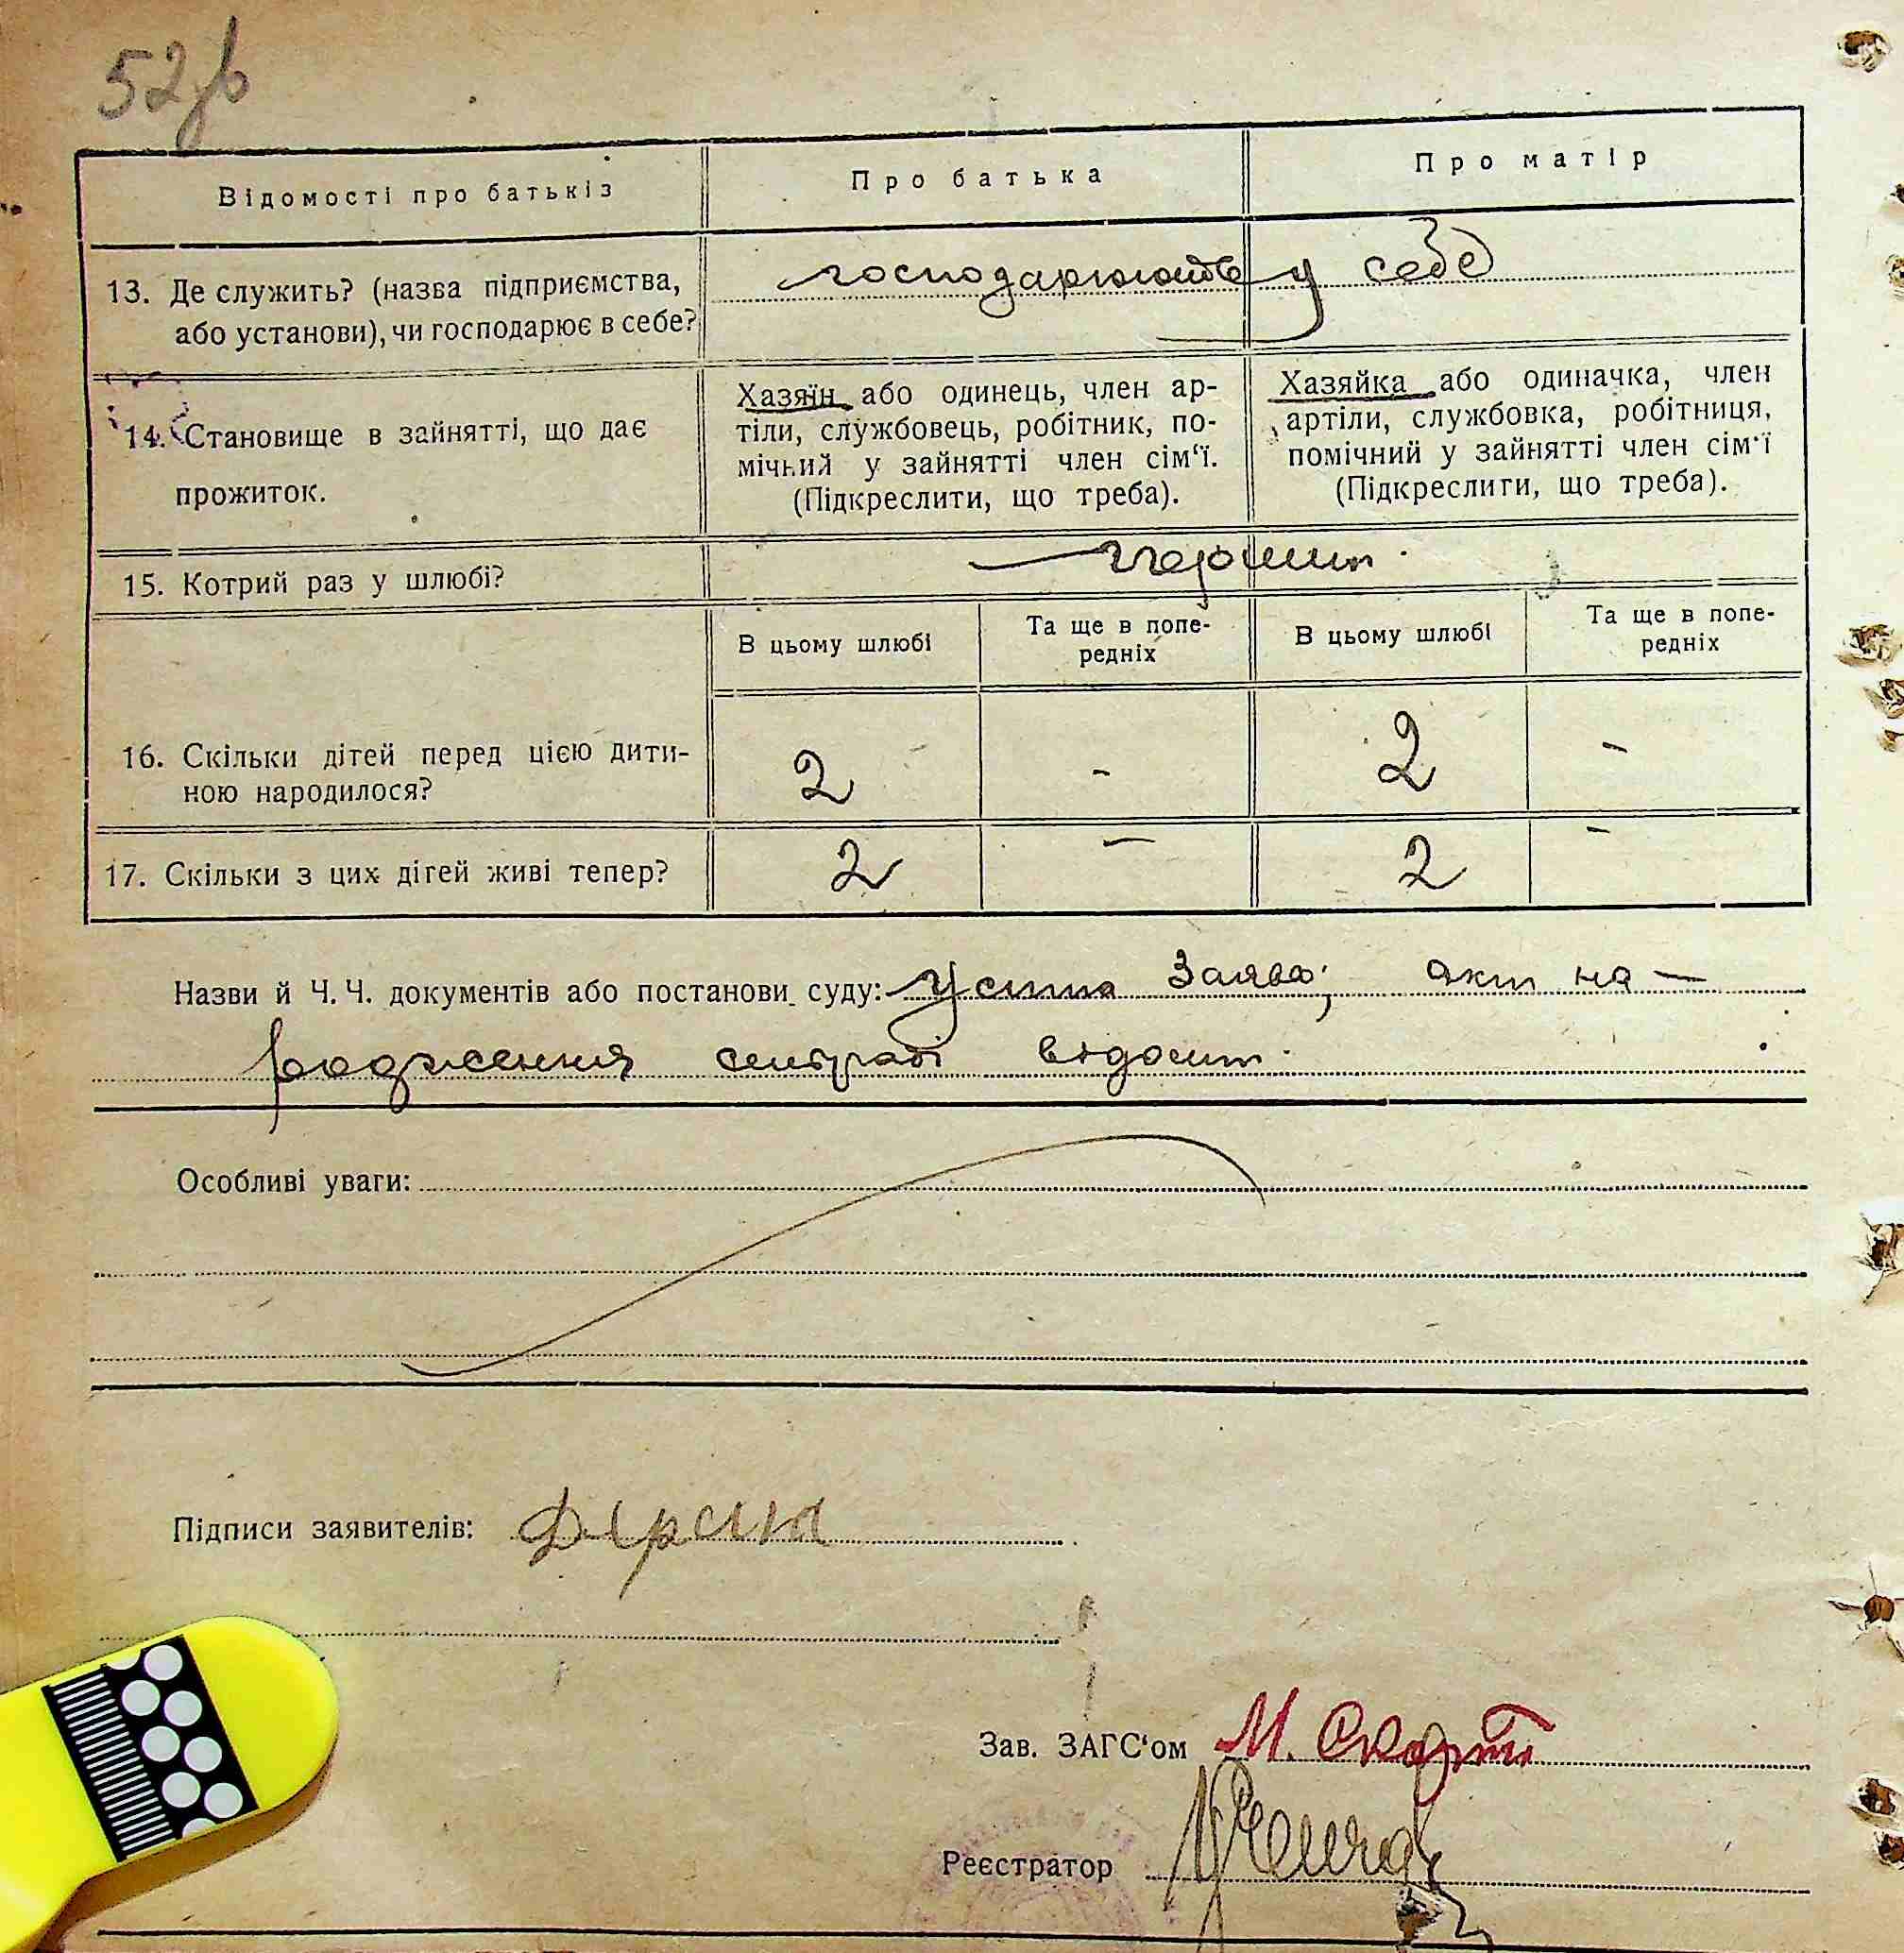 52зв
Відомості про батьків
Про батька
Про матір
13. Де служить? (назва підприємства,
або установи), чи господарює в себе?
господарюють у себе
14. Становище в зайнятті, що дає
прожиток.
Хазяїн або одинець, член ар-
тіли, службовець, робітник, по-
мічний у зайнятті член сім'ї.
(Підкреслити, що треба).
Хазяйка або одиначка, член
артіли, службовка, робітниця,
помічний у зайнятті член сім'ї
(Підкреслити, що треба).
15. Котрий раз у шлюбі?
перший
В цьому шлюбі
Та ще в попе-
редніх
В цьому шлюбі
Та ще в попе-
редніх
16. Скільки дітей перед цією дити-
ною народилося?
2 - 2 -
17. Скільки з цих дітей живі тепер?
2 - 2 -
Назви й Ч. Ч. документів або постанови суду: Устна заява; акт на-
родження сельраді
Особливі уваги:
Підписи заявителів:
Зав. ЗАГС'ом М.
Реєстратор